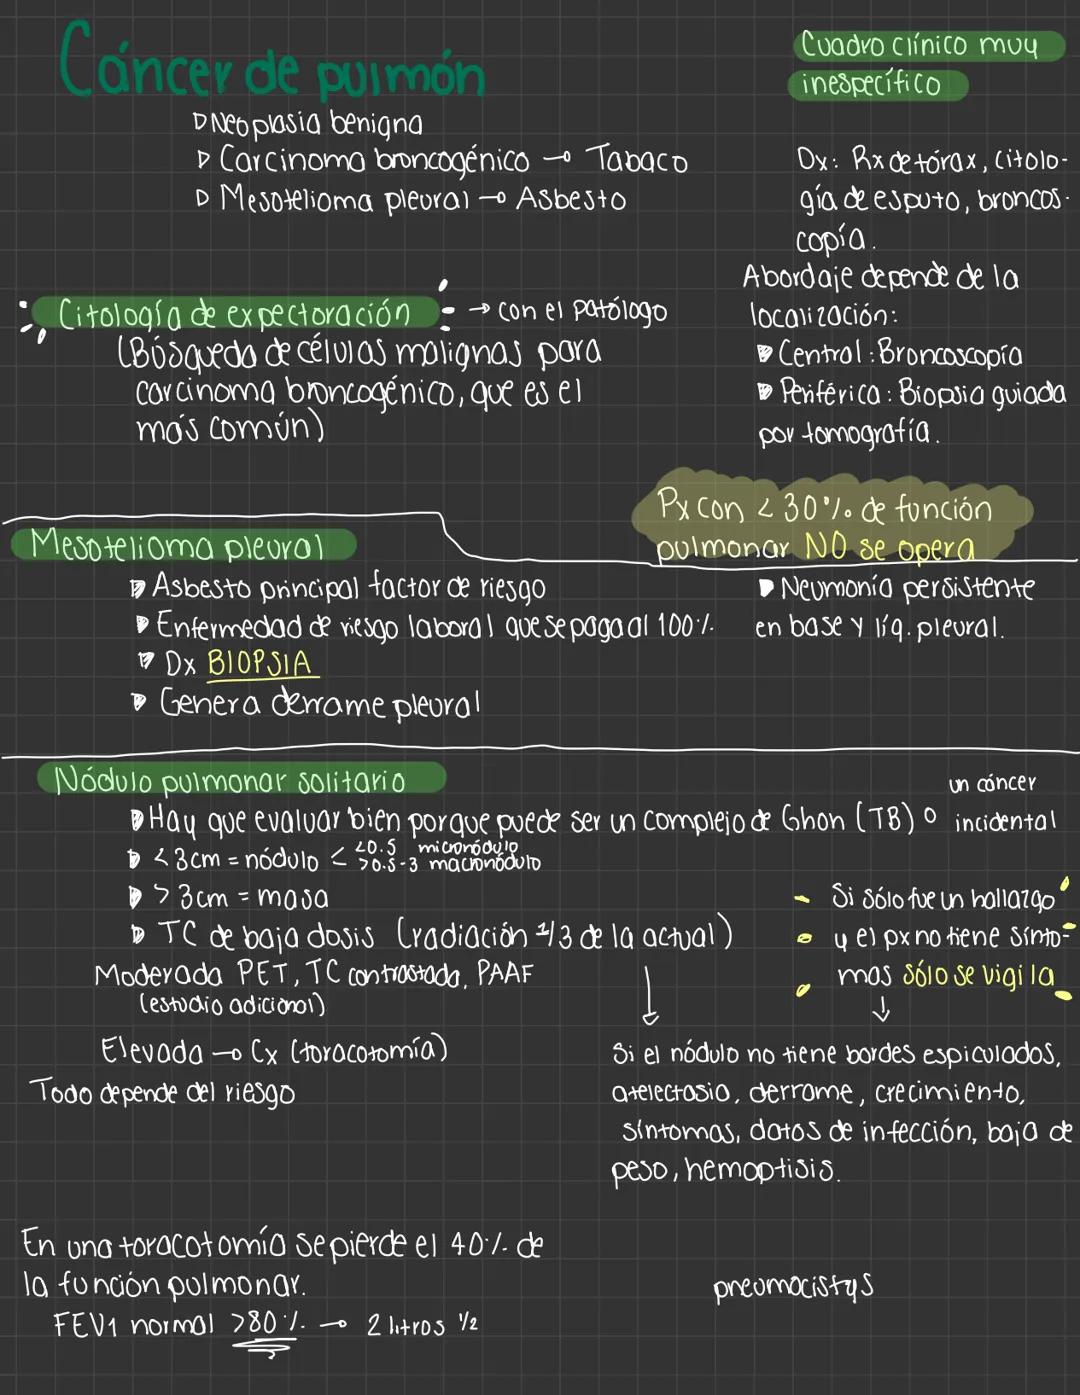 Cáncer de pulmón
▷ Neoplasia benigna
▷ Carcinoma broncogénico → Tabaco
▷ Mesotelioma pleural → Asbesto
Cuadro clínico muy
inespecífico
Dx: Rx de tórax, citolo-
gía de esputo, broncos-
copía.
Abordaje depende de la
localización:
▷ Central: Broncoscopía
▷ Periférica: Biopsia guiada
por tomografía.
Citología de expectoración → con el patólogo
(Búsqueda de células malignas para
carcinoma broncogénico, que es el
más común)
Px con < 30% de función
pulmonar NO se opera
Mesotelioma pleural
▷ Asbesto principal factor de riesgo
▷ Enfermedad de riesgo laboral que se paga al 100%
▷ Dx BIOPSIA
▷ Genera derrame pleural
▷ Neumonía persistente
en base y líq. pleural.
Nódulo pulmonar solitario
▷ Hay que evaluar bien porque puede ser un complejo de Ghon (TB) o un cáncer incidental
▷ <3cm = nódulo < <0.5 micronódulo
>0.5-3 macronódulo
▷ > 3cm = masa
▷ TC de baja dosis (radiación 1/3 de la actual)
Moderada PET, TC contrastada, PAAF
(estudio adicional)
Elevada → Cx (toracotomía)
Todo depende del riesgo
Si sólo fue un hallazgo
y el px no tiene sínto-
mas sólo se vigila
↓
Si el nódulo no tiene bordes espiculados,
atelectasia, derrame, crecimiento,
síntomas, datos de infección, baja de
peso, hemoptisis.
En una toracotomía se pierde el 40% de
la función pulmonar.
FEV1 normal >80% → 2 litros 1/2
pneumocistys